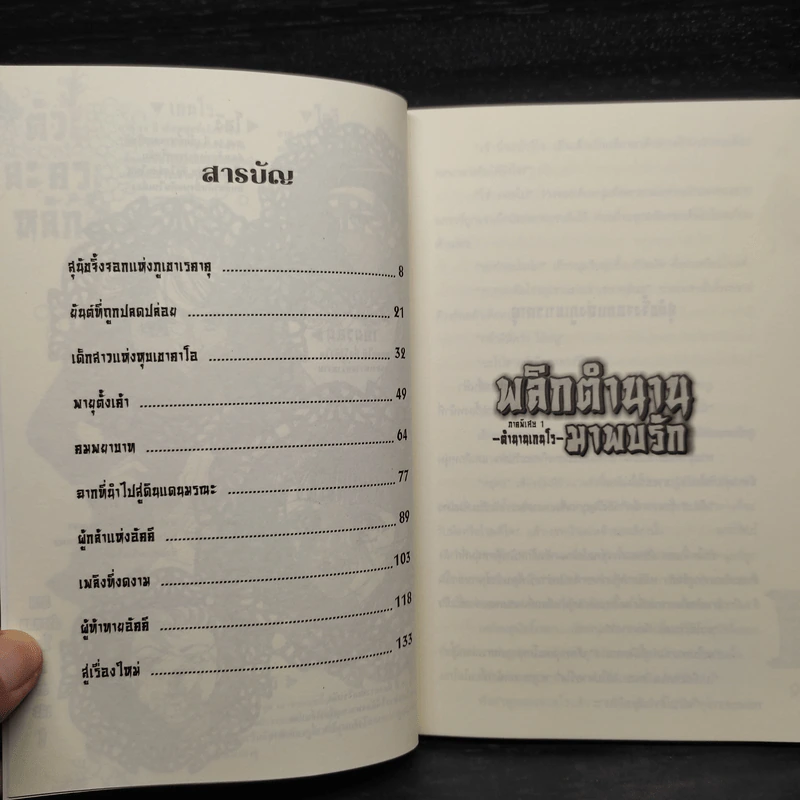 สารบัญ
สุนัขจิ้งจอกแห่งภูเขาเรคาคุ 8
ยันต์ที่ถูกปลดปล่อย 21
เด็กสาวแห่งหุบเขาคาโอ 32
พายุตั้งเค้า 49
คมพยาบาท 64
ฉากที่นำไปสู่ดินแดนมรณะ 77
ผู้กล้าแห่งอัคคี 89
เพลิงที่งดงาม 103
ผู้ท้าทายอัคคี 118
สู่เรื่องใหม่ 133
พลิกตำนาน
ภาคพิเศษ 1
-ตำนานเกนโร-
มาพบรัก